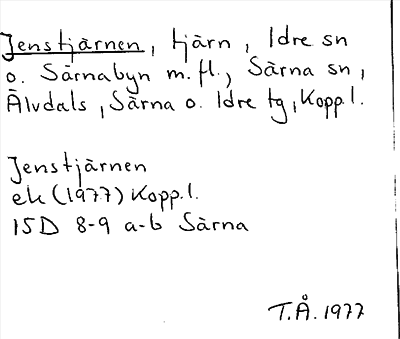 Jenstjärnen, tjärn, Idre sn
o. Särnabyn m.fl., Särna sn,
Älvdals, Särna o. Idre tg, Kopp.l.
Jenstjärnen
ek (1977) Kopp.l.
15D 8-9 a-b Särna
T.Å. 1977